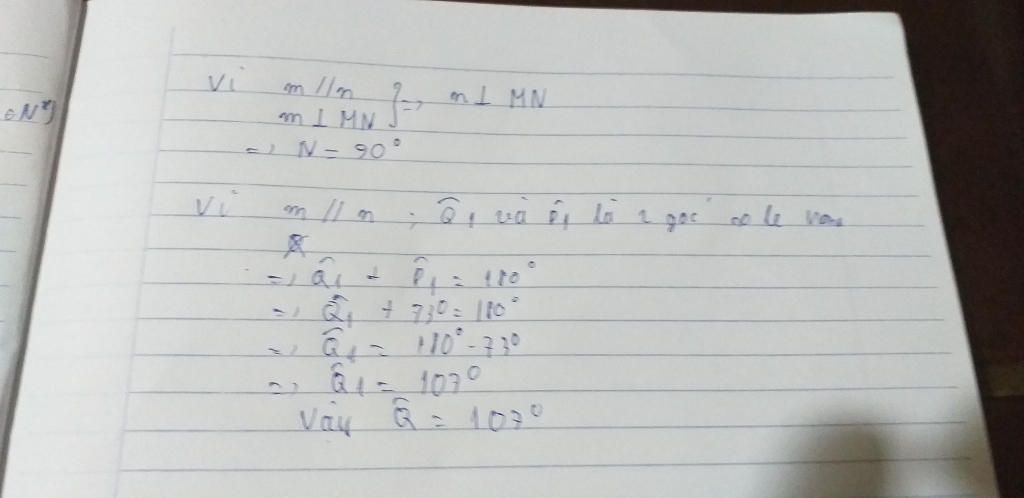 εN*)
Vì m // n } => n ⊥ MN
m ⊥ MN
=> N = 90°
Vì m // n ; Q̂₁ và P̂₁ là 2 góc so le
=> Q̂₁ + P̂₁ = 180°
=> Q̂₁ + 73° = 180°
=> Q̂₁ = 180° - 73°
=> Q̂₁ = 107°
Vậy Q̂ = 107°